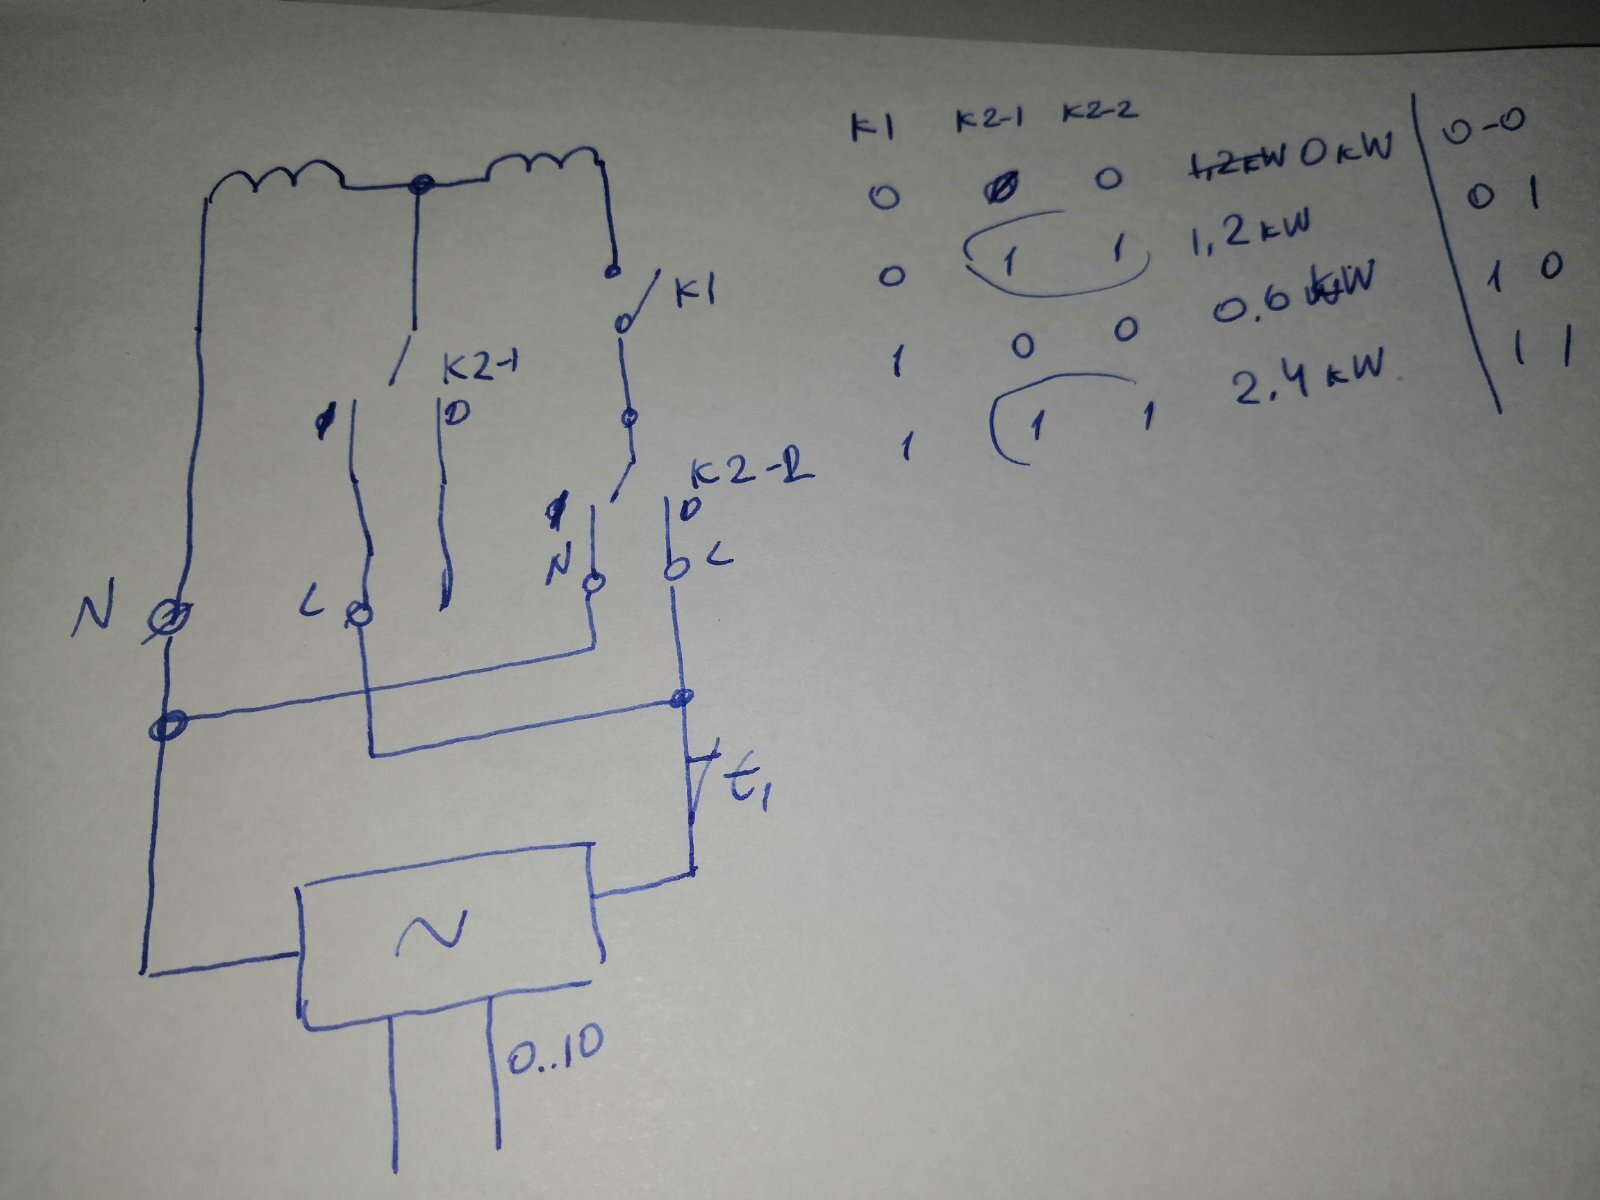 K1 K2-1 K2-2
0 0 0 1,2kW 0kW 0-0
0 1 1 1,2kW 0 1
1 0 0 0.6kW 1 0
1 1 1 2.4kW 1 1
K1
K2-1
1 0
K2-2
1 0
N L
N L
t1
~
0..10